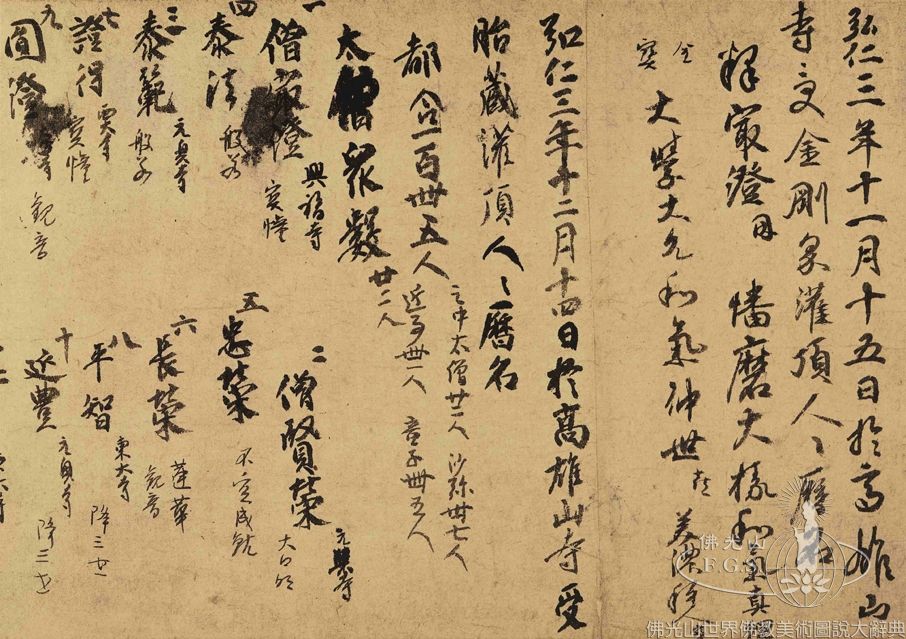 弘仁三年十一月十五日於高雄山
寺受金剛界灌頂人々曆名
釋最澄 因 播磨大掾和氣真綱
大學大允和氣仲世 喜 美濃種人
金
寶
弘仁三年十二月十四日於高雄山寺受
胎藏灌頂人々曆名
都合一百卌五人
之中太僧廿二人 沙弥卅七人
近事卌一人 童子卌五人
太僧衆數 廿二人
一 僧最澄 興福寺 寶幢
二 僧賢榮 元興寺 大日
四 泰法 般若
五 忠榮 不空成就
三 泰範 元興寺 般若
六 長榮 蓮華 觀音
七 證得 寶幢
八 平智 東大寺 降三世
九 圓澄 觀音
十 近豊 元興寺 降三世
佛光山
F.G.S.
佛光山世界佛教美術圖說大辭典